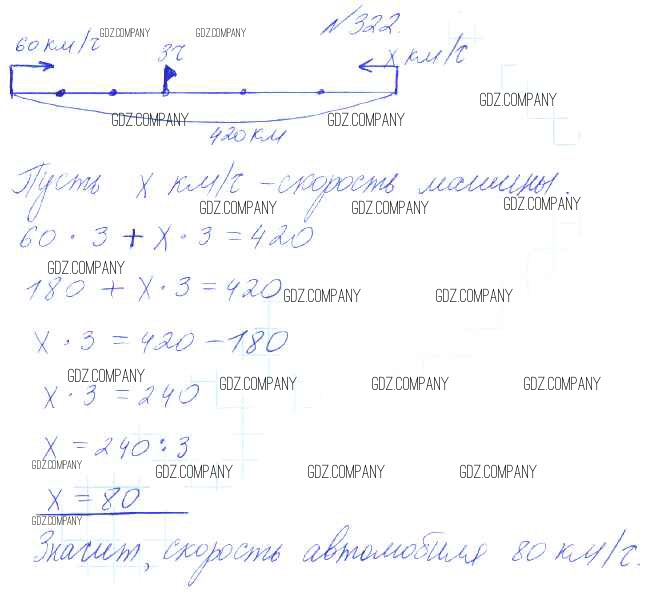 №322.
GDZ.COMPANY GDZ.COMPANY
60 км/ч 3ч х км/ч
GDZ.COMPANY
GDZ.COMPANY GDZ.COMPANY
420 км
Пусть х км/ч - скорость машины.
GDZ.COMPANY GDZ.COMPANY GDZ.COMPANY
60 · 3 + х · 3 = 420
GDZ.COMPANY
180 + х · 3 = 420
GDZ.COMPANY GDZ.COMPANY
х · 3 = 420 - 180
GDZ.COMPANY GDZ.COMPANY GDZ.COMPANY GDZ.COMPANY
х · 3 = 240
х = 240 : 3
GDZ.COMPANY GDZ.COMPANY GDZ.COMPANY GDZ.COMPANY
х = 80
GDZ.COMPANY
Значит, скорость автомобиля 80 км/ч.